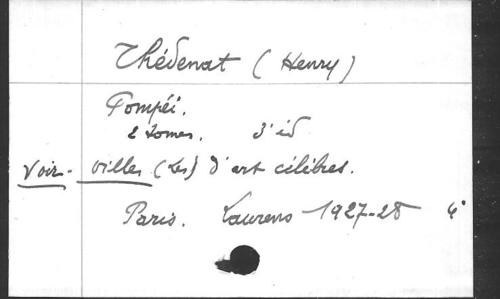 Thédenat (Henry)
Pompéi.
2 tomes. 3e éd
Voir - villes (Les) d'art célèbres.
Paris. Laurens 1927-28 4°